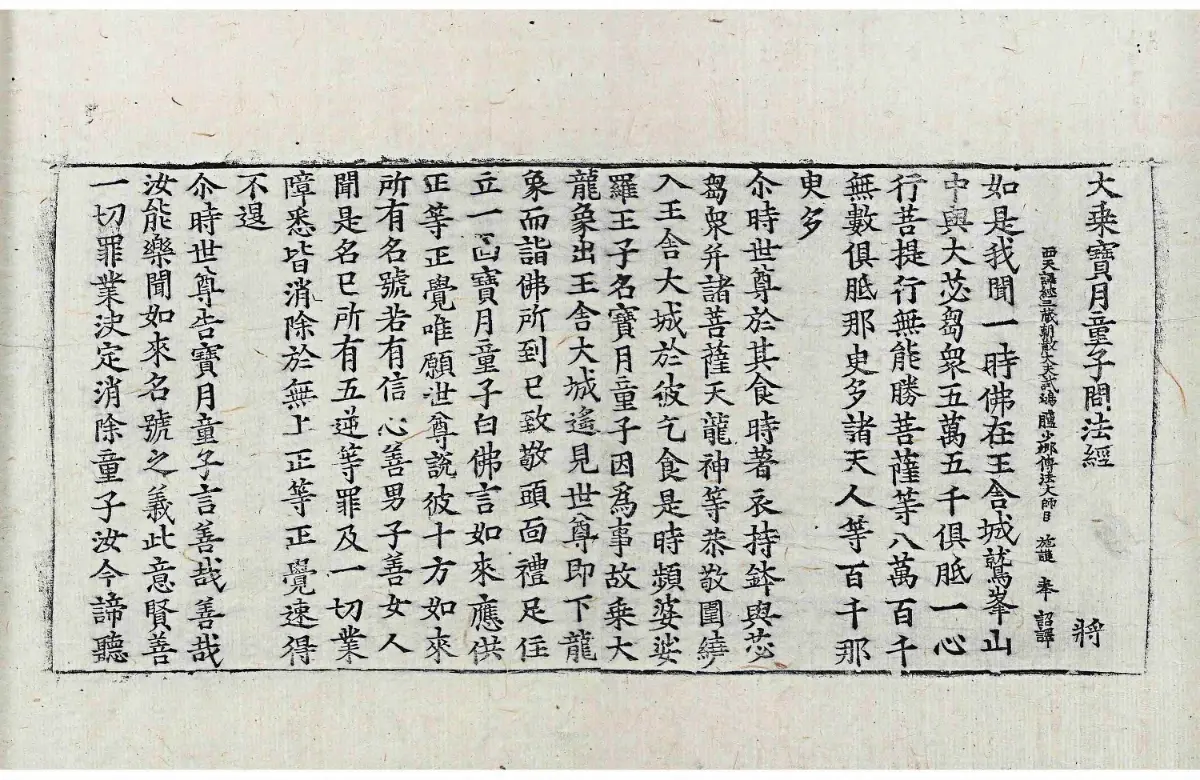 大乗寳月童子問法經 將
西天譯經三藏朝散大夫試鴻臚少卿傳法大師臣 施護 奉 詔譯
如是我聞一時佛在王舎城鷲峯山
中與大苾蒭衆五萬五千俱胝一心
行菩提行無能勝菩薩等八萬百千
無數俱胝那庾多諸天人等百千那
庾多
尒時世尊於其食時著衣持鉢與苾
蒭衆并諸菩薩天龍神等恭敬圍繞
入王舎大城於彼乞食是時頻婆娑
羅王子名寳月童子因為事故乗大
龍象出王舎大城遙見世尊即下龍
象而詣佛所到已致敬頭面禮足住
立一面寳月童子白佛言如來應供
正等正覺唯願世尊說彼十方如來
所有名號若有信心善男子善女人
聞是名已所有五逆等罪及一切業
障悉皆消除於無上正等正覺速得
不退
尒時世尊告寳月童子言善哉善哉
汝能樂聞如來名號之義此意賢善
一切罪業決定消除童子汝今諦聽